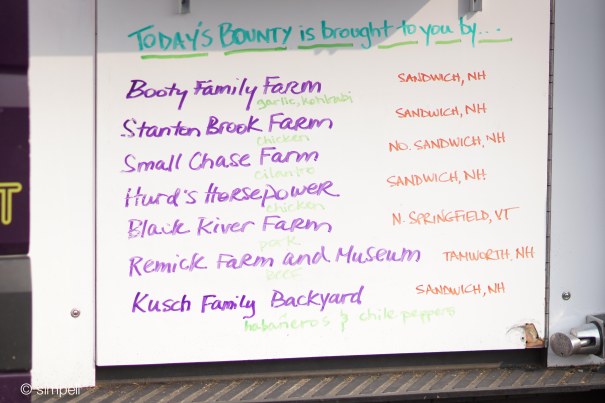 TODAY'S BOUNTY is brought to you by...
Booty Family Farm SANDWICH, NH
garlic, kohlrabi
Stanton Brook Farm SANDWICH, NH
chicken
Small Chase Farm NO. SANDWICH, NH
cilantro
Hurd's Horsepower SANDWICH, NH
chicken
Black River Farm N. SPRINGFIELD, VT
pork
Remick Farm and Museum TAMWORTH, NH
beef
Kusch Family Backyard SANDWICH, NH
habañeros & chile peppers
T
© simpell